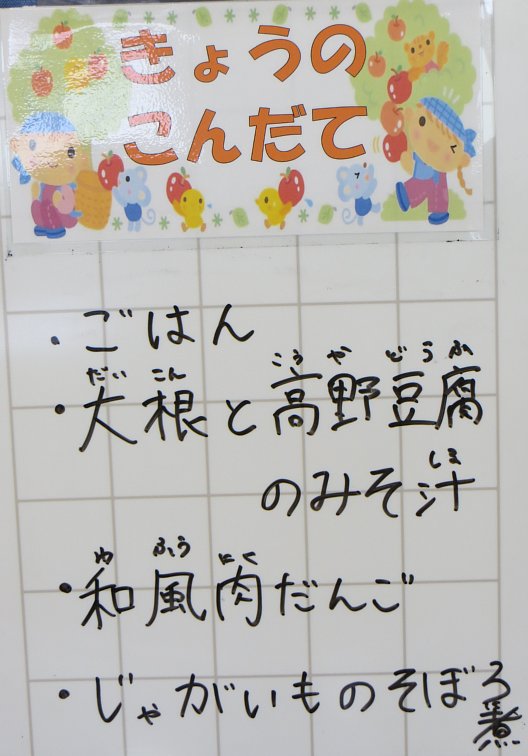 きょうの
こんだて
・ごはん
だいこん こうやどうふ
・大根と高野豆腐
しる
のみそ汁
わ ふう にく
・和風肉だんご
・じゃがいものそぼろ
煮